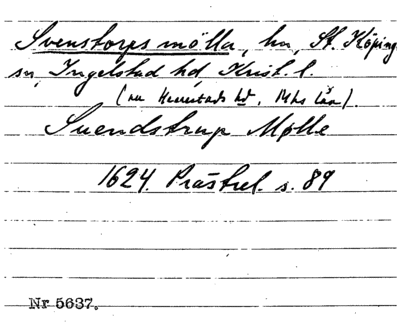 Svenstorps mölla, hn, St. Köpinge
sn, Ingelstad hd, Krist. l.
(nu Herrestads hd, Mhs län).
Suendstrup Mølle
1624. Prästrel. s. 89
Nr 5637.